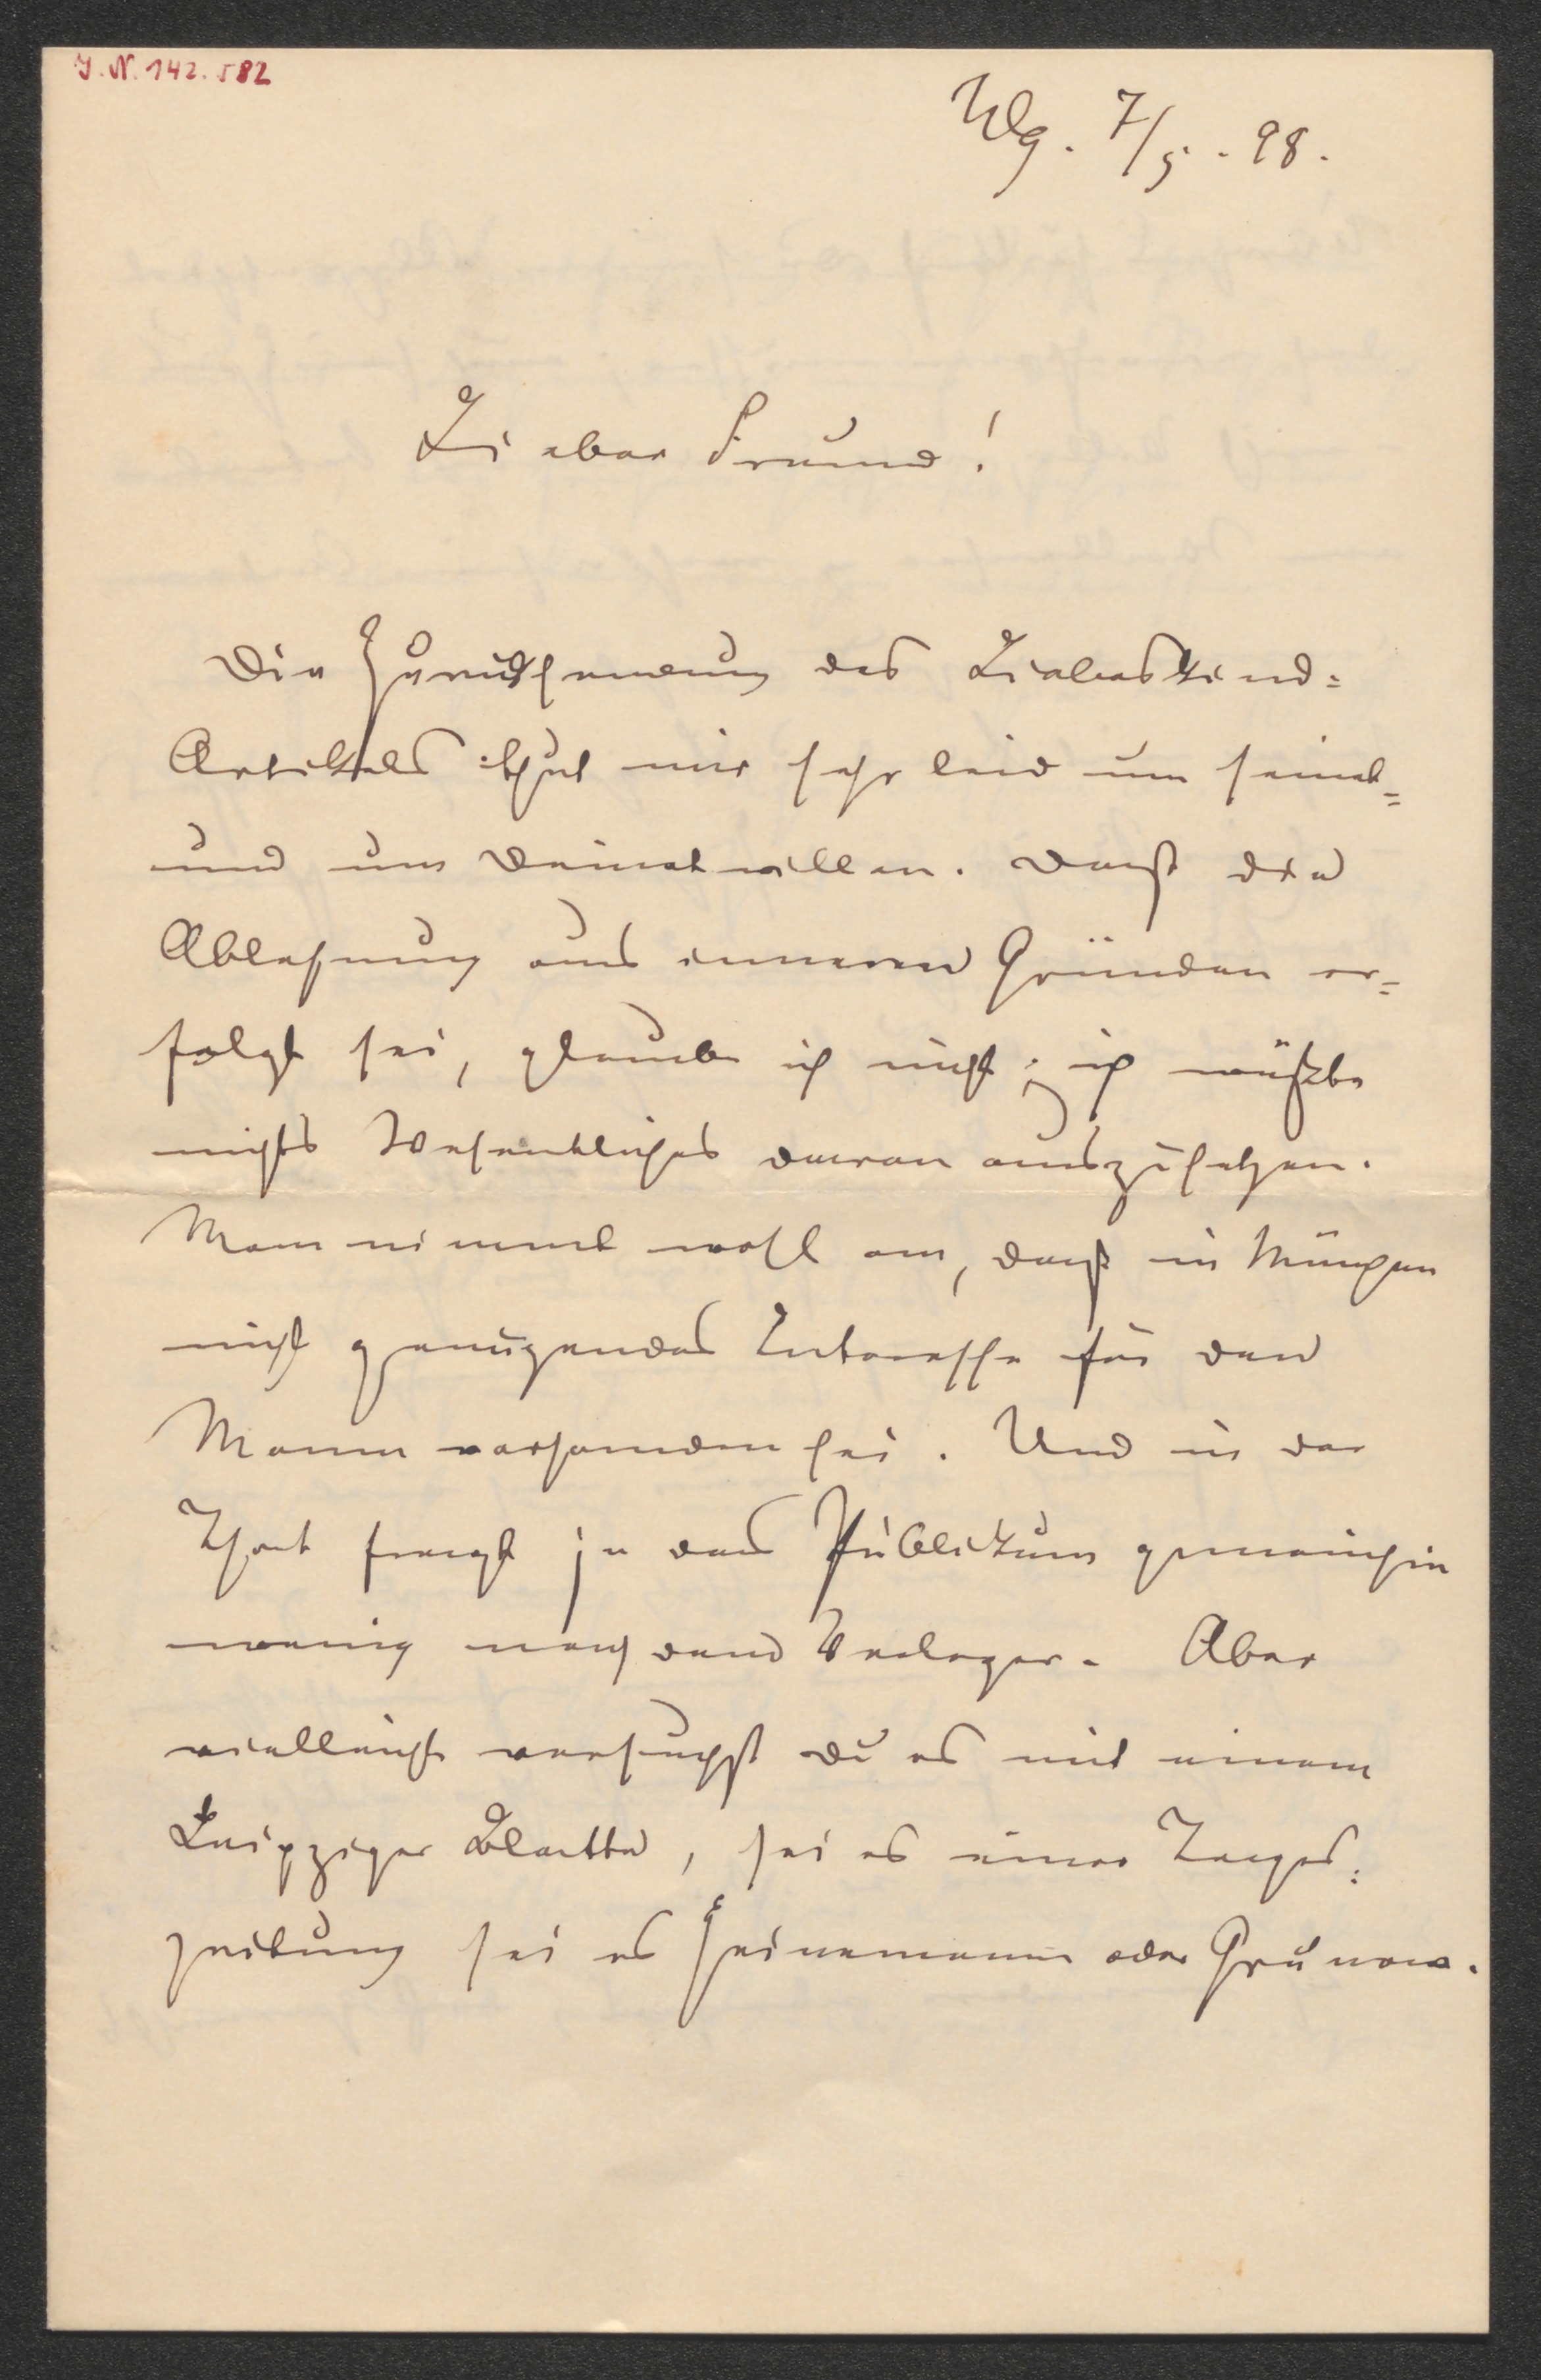 J.N. 142.582
Wg. 7/5. 98.
Lieber Freund!
Die Zurücksendung des Liebeskind=
Artikels thut mir sehr leid um seinet=
und um Deinetwillen. Dass die
Ablehnung aus inneren Gründen er=
folgt sei, glaube ich nicht; ich wüßte
nichts Wesentliches daran auszusetzen.
Man nimmt wohl an, daß in München
nicht genügendes Interesse für den
Mann vorhanden sei. Und in der
That fragt ja das Publikum gemeinhin
wenig nach dem Verleger. Aber
vielleicht versuchst du es mit einem
Leipziger Blatte, sei es einer Tages=
zeitung sei es Heinemann oder Grunow.